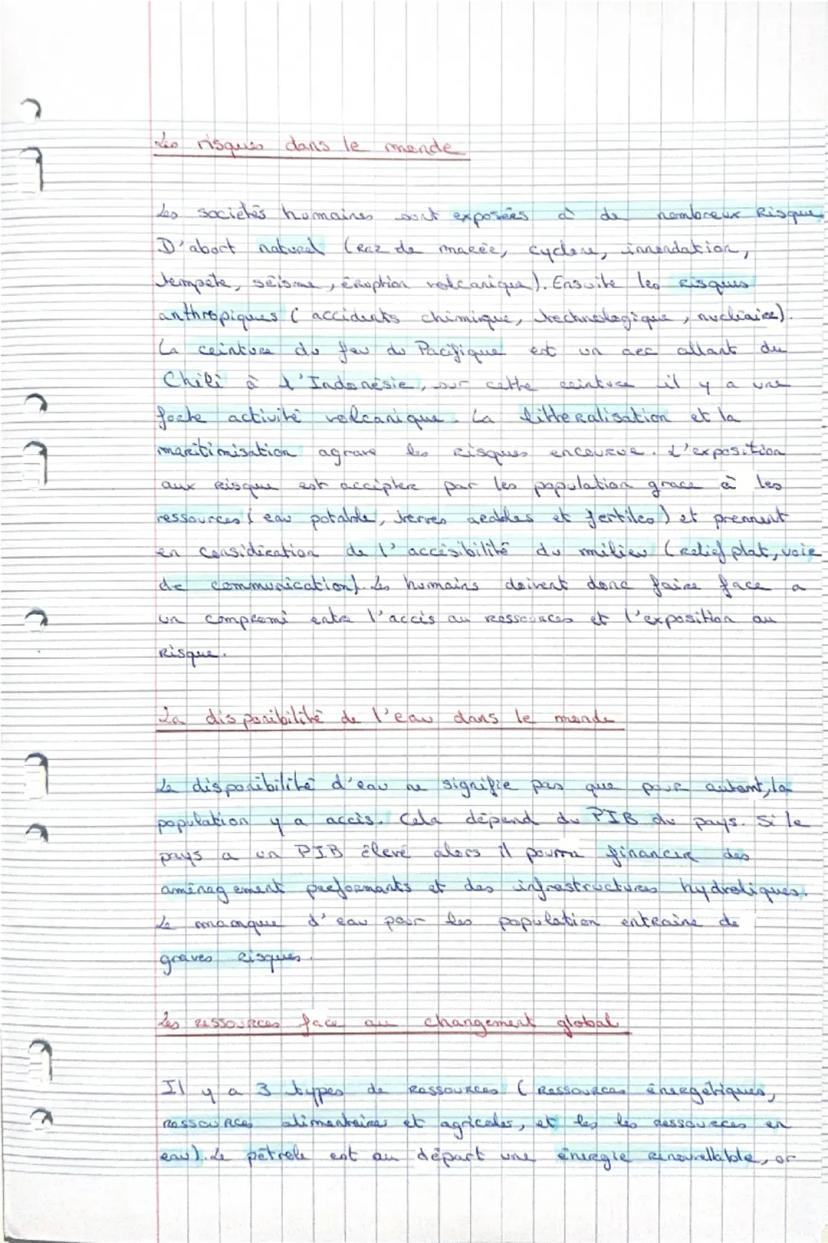 Les risques dans le monde
Les societés humaines sont exposées à de nombreux Risque
D'abort naturel (Raz de marée, cyclone, innondation,
tempête, séisme, éruption volcanique). Ensuite les risques
anthropiques (accidents chimique, technologique, nucléaire).
La ceinture du feu du Pacifique est un arc allant du
Chili à l'Indonésie, sur cette ceinture il y a une
forte activité volcanique. La litteralisation et la
maritimisation agrave les risques encourue. L'exposition
aux risque est acceptée par les population grace à les
ressources (eau potable, terres arables et fertiles) et prennent
en considération de l'accésibilité du milieu (relief plat, voie
de communication). Les humains doivent donc faire face a
un compromi entre l'accès au ressources et l'exposition au
risque.
La disponibilité de l'eau dans le monde
La disponibilité d'eau ne signifie pas que pour autant, la
population y a accès. Cela dépend du PIB du pays. Si le
pays a un PIB élevé alors il pourra financer des
aménagement preformants et des infrastructures hydroliques.
Le manque d'eau pour les population entraine de
graves risques.
Les ressources face au changement global
Il y a 3 types de ressources (ressources énergétiques,
ressources alimentaires et agricoles, et les les ressources en
eau). Le pétrole est au départ une énergie renouvellable, or